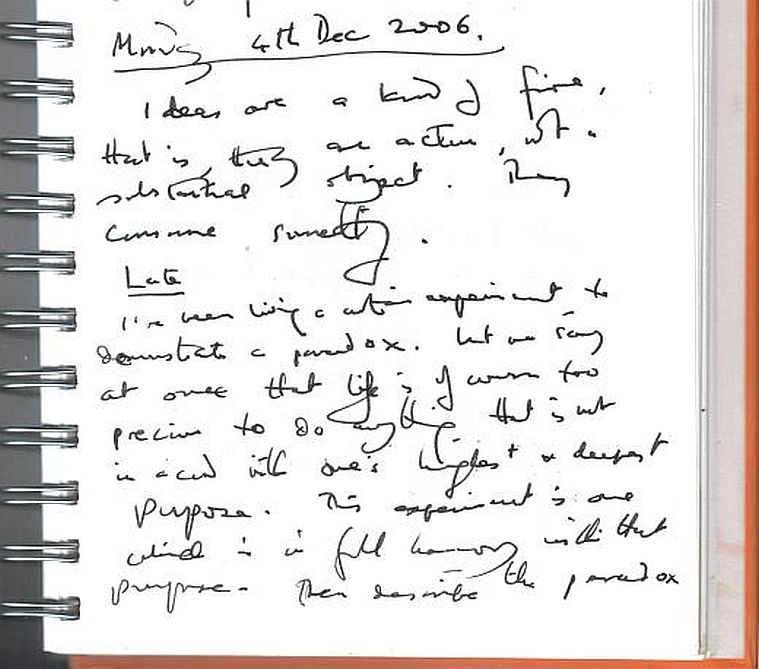 Monday 4th Dec 2006.
Ideas are a kind of fire,
that is, they are action, not a
substantial object. They
consume something.
Late
I've been living a certain experiment to
demonstrate a paradox. Let me say
at once that life is of course too
precious to do anything that is not
in accord with one's highest & deepest
purpose. This experiment is one
which is in full harmony with that
purpose. Then describe the paradox